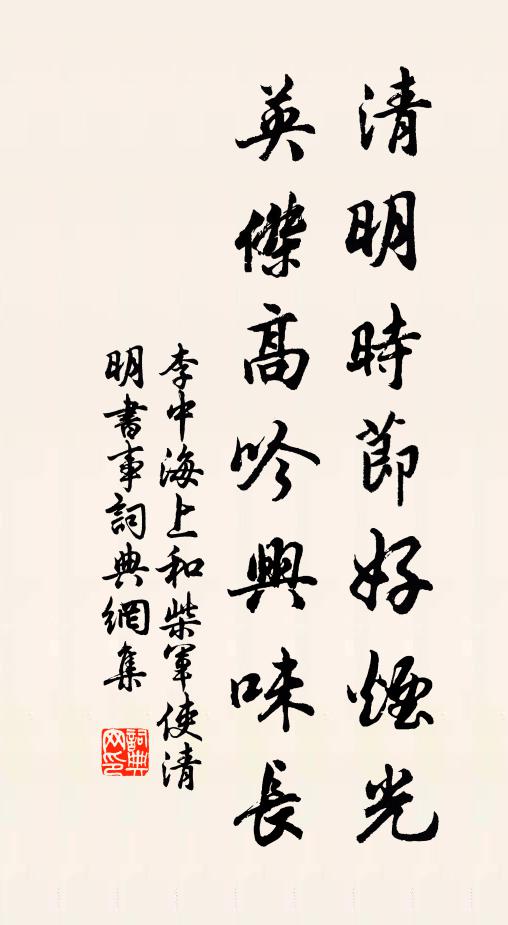 清明時節好煙光
英傑高吟興味長
李中海上和柴軍使清
明書事詞典網集
詞典网印